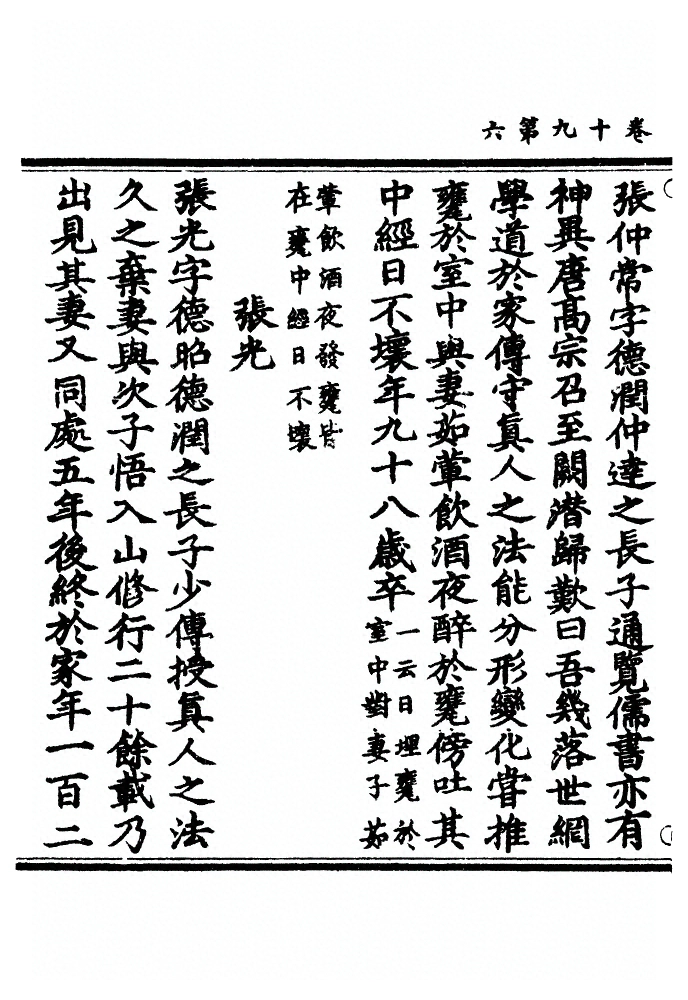 卷十九第六
張仲常字德潤仲逹之長子通覽儒書亦有
神異唐髙宗召至闕潜歸歎曰吾幾落世網
學道於家傳守真人之法能分形變化甞推
甕於室中與妻茹葷飲酒夜醉於甕傍吐其
中經日不壞年九十八歲卒一云日埋甕於
室中對妻子茹
葷飲酒夜發甕皆
在甕中經日不壞
張光
張光字德昭德潤之長子少傳授真人之法
久之棄妻與次子悟入山修行二十餘載乃
出見其妻又同處五年後終於家年一百二